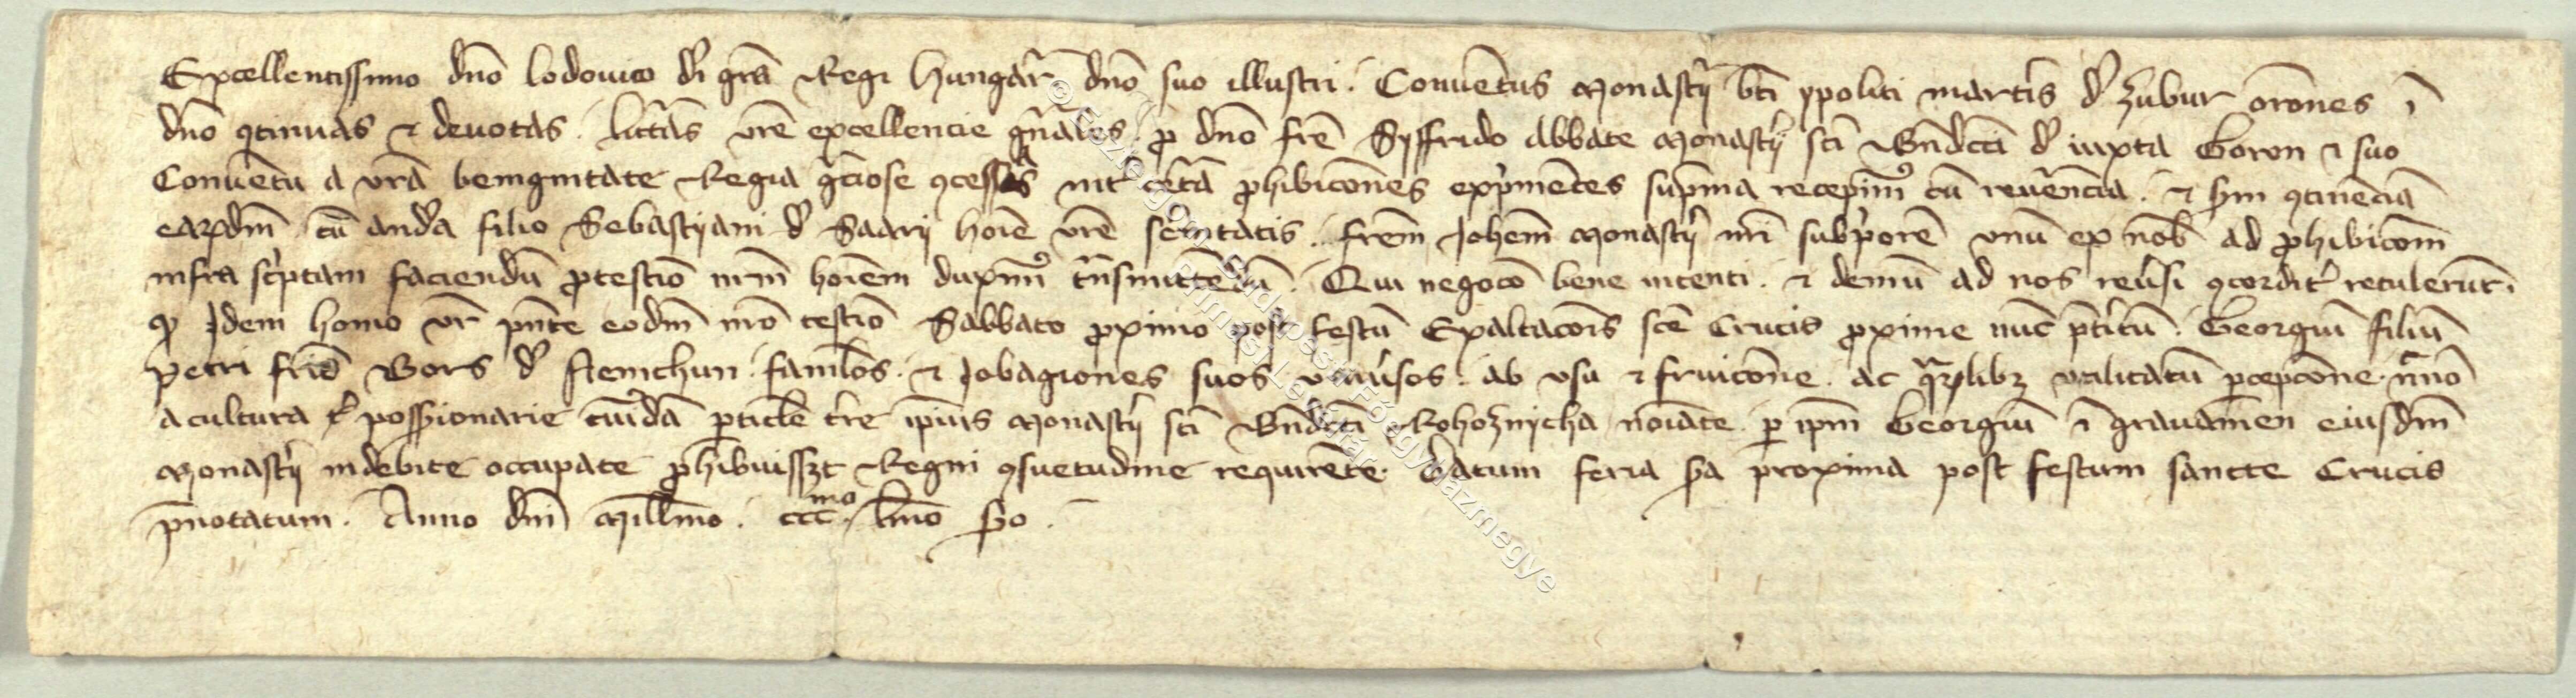 Excellentissimo dno lodouico di gra Regi hungar dno suo illustri. Conuentus Monastrij bti ypoliti martiris de zubur orones i
dno 9tinuas et deuotas. littas vre excellencie gnales, pro dno fre Syffrido Abbate Monastrij sci Bndcti de iuxta Goron et suo
Conuentu a vra benignitate Regia gciose 9cessas int ceta prohibicones exprimentes suprema recepim9 cu reuerencia. et Sym 9tinencia
earundm cu andrea filio Sebastyani de Saary hoie vre serenitatis. frem Johem Monastrij nri subpriore vnu ex nob ad prohibicom
infra scriptam faciendu pro testio nrm hoiem duxim9 tnsmittendu. Qui negoco bene intenti. et demu ad nos reuersi 9cordit retulerut.
q Idem homo vr pnte eodm nro testio Sabbato proximo post festu Exaltacois sce Crucis proxime nuc pteritu. Georgiu filiu
petri fris Bors de Nemchun. famlos. et Jobagiones suos vniuersos. ab vsu et fruicone. ac qrulibz vtilitatu percepcone. nnno
acultura possionarie cuiusda perticle terre ipius Monastrij sci Bndcti Rohoznicha noiate. per ipm Georgiu i grauamen eiusdm
Monastrij indebite occupate prohibuisset Regni 9suetudine requirente. Datum feria sexta proxima post festum sancte Crucis
pnotatum. Anno dni Millmo. cccmo. lmo so.
© Esztergom-Budapesti Főegyházmegye
Prímási Levéltár